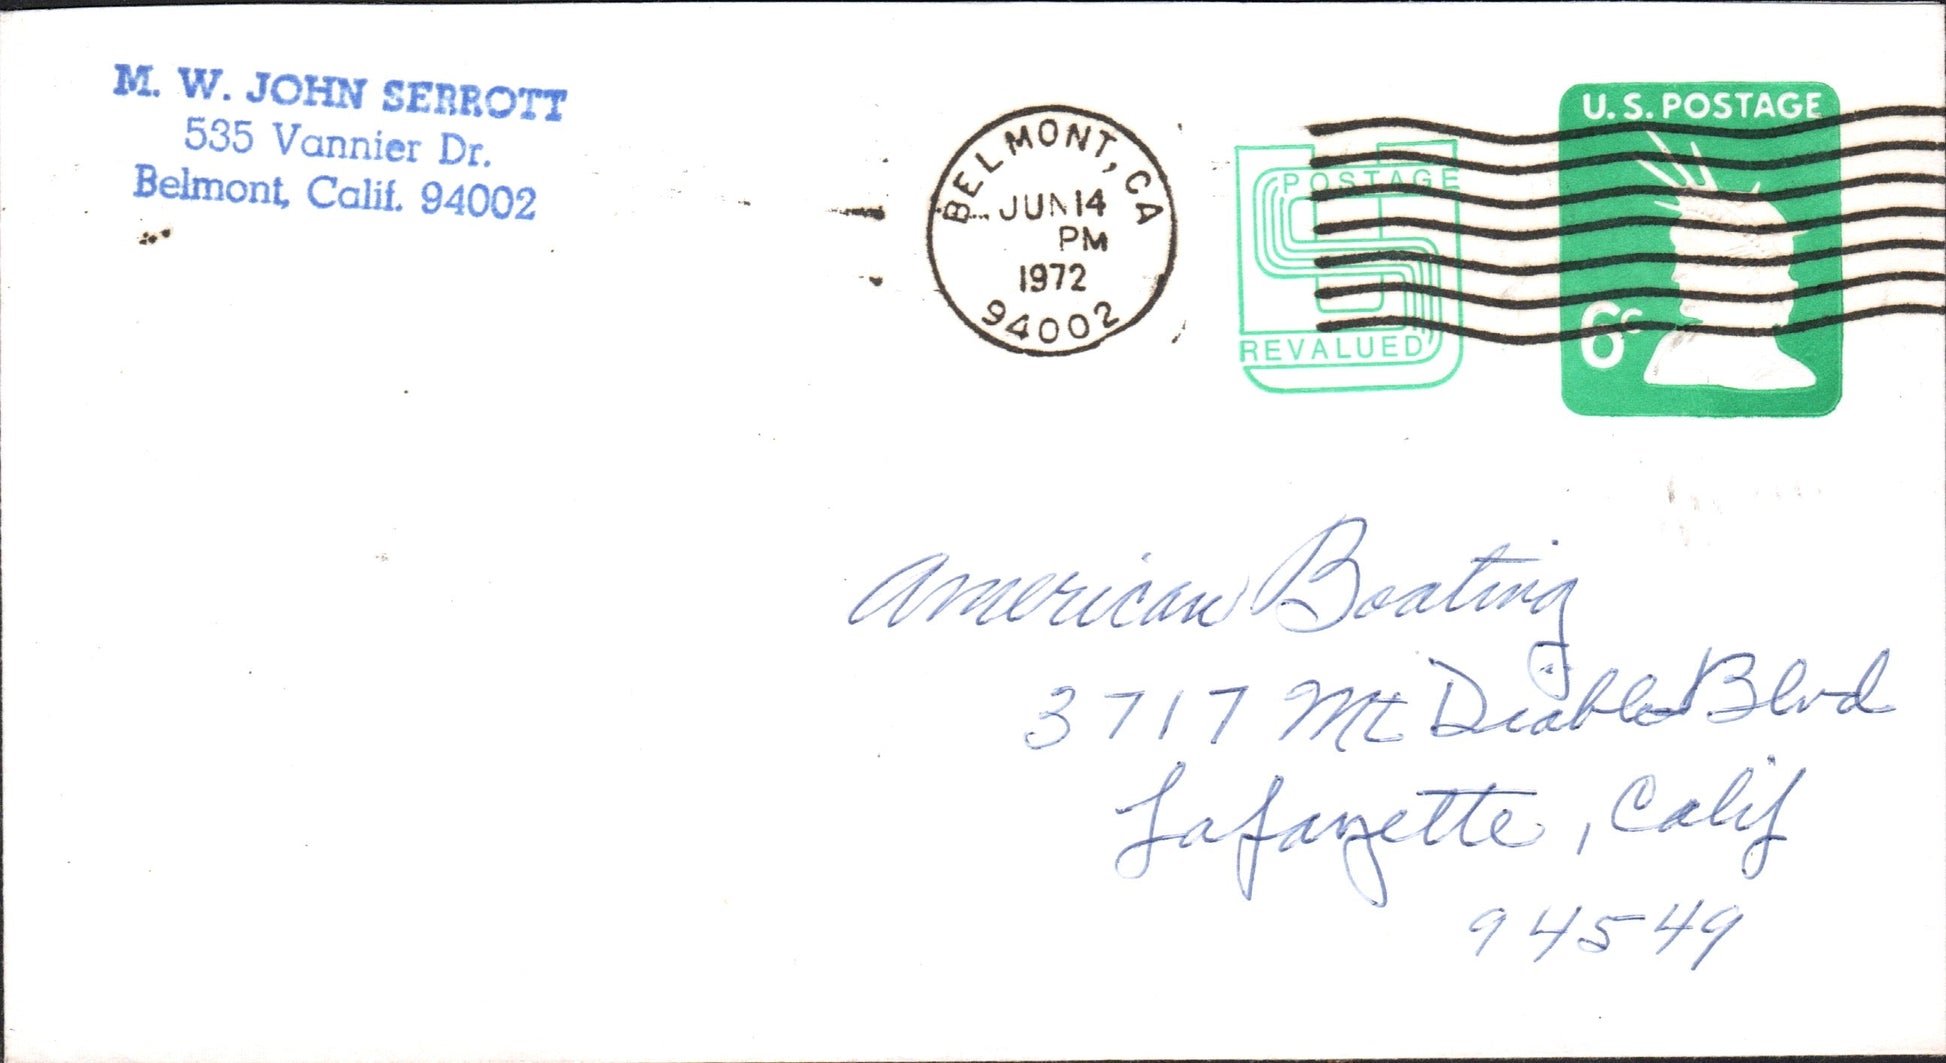 M. W. JOHN SERROTT
535 Vannier Dr.
Belmont, Calif. 94002
BELMONT, CA
JUN 14
PM
1972
94002
POSTAGE
REVALUED
U.S. POSTAGE
6c
American Boating
3717 Mt Diablo Blvd
Lafayette, Calif
94549